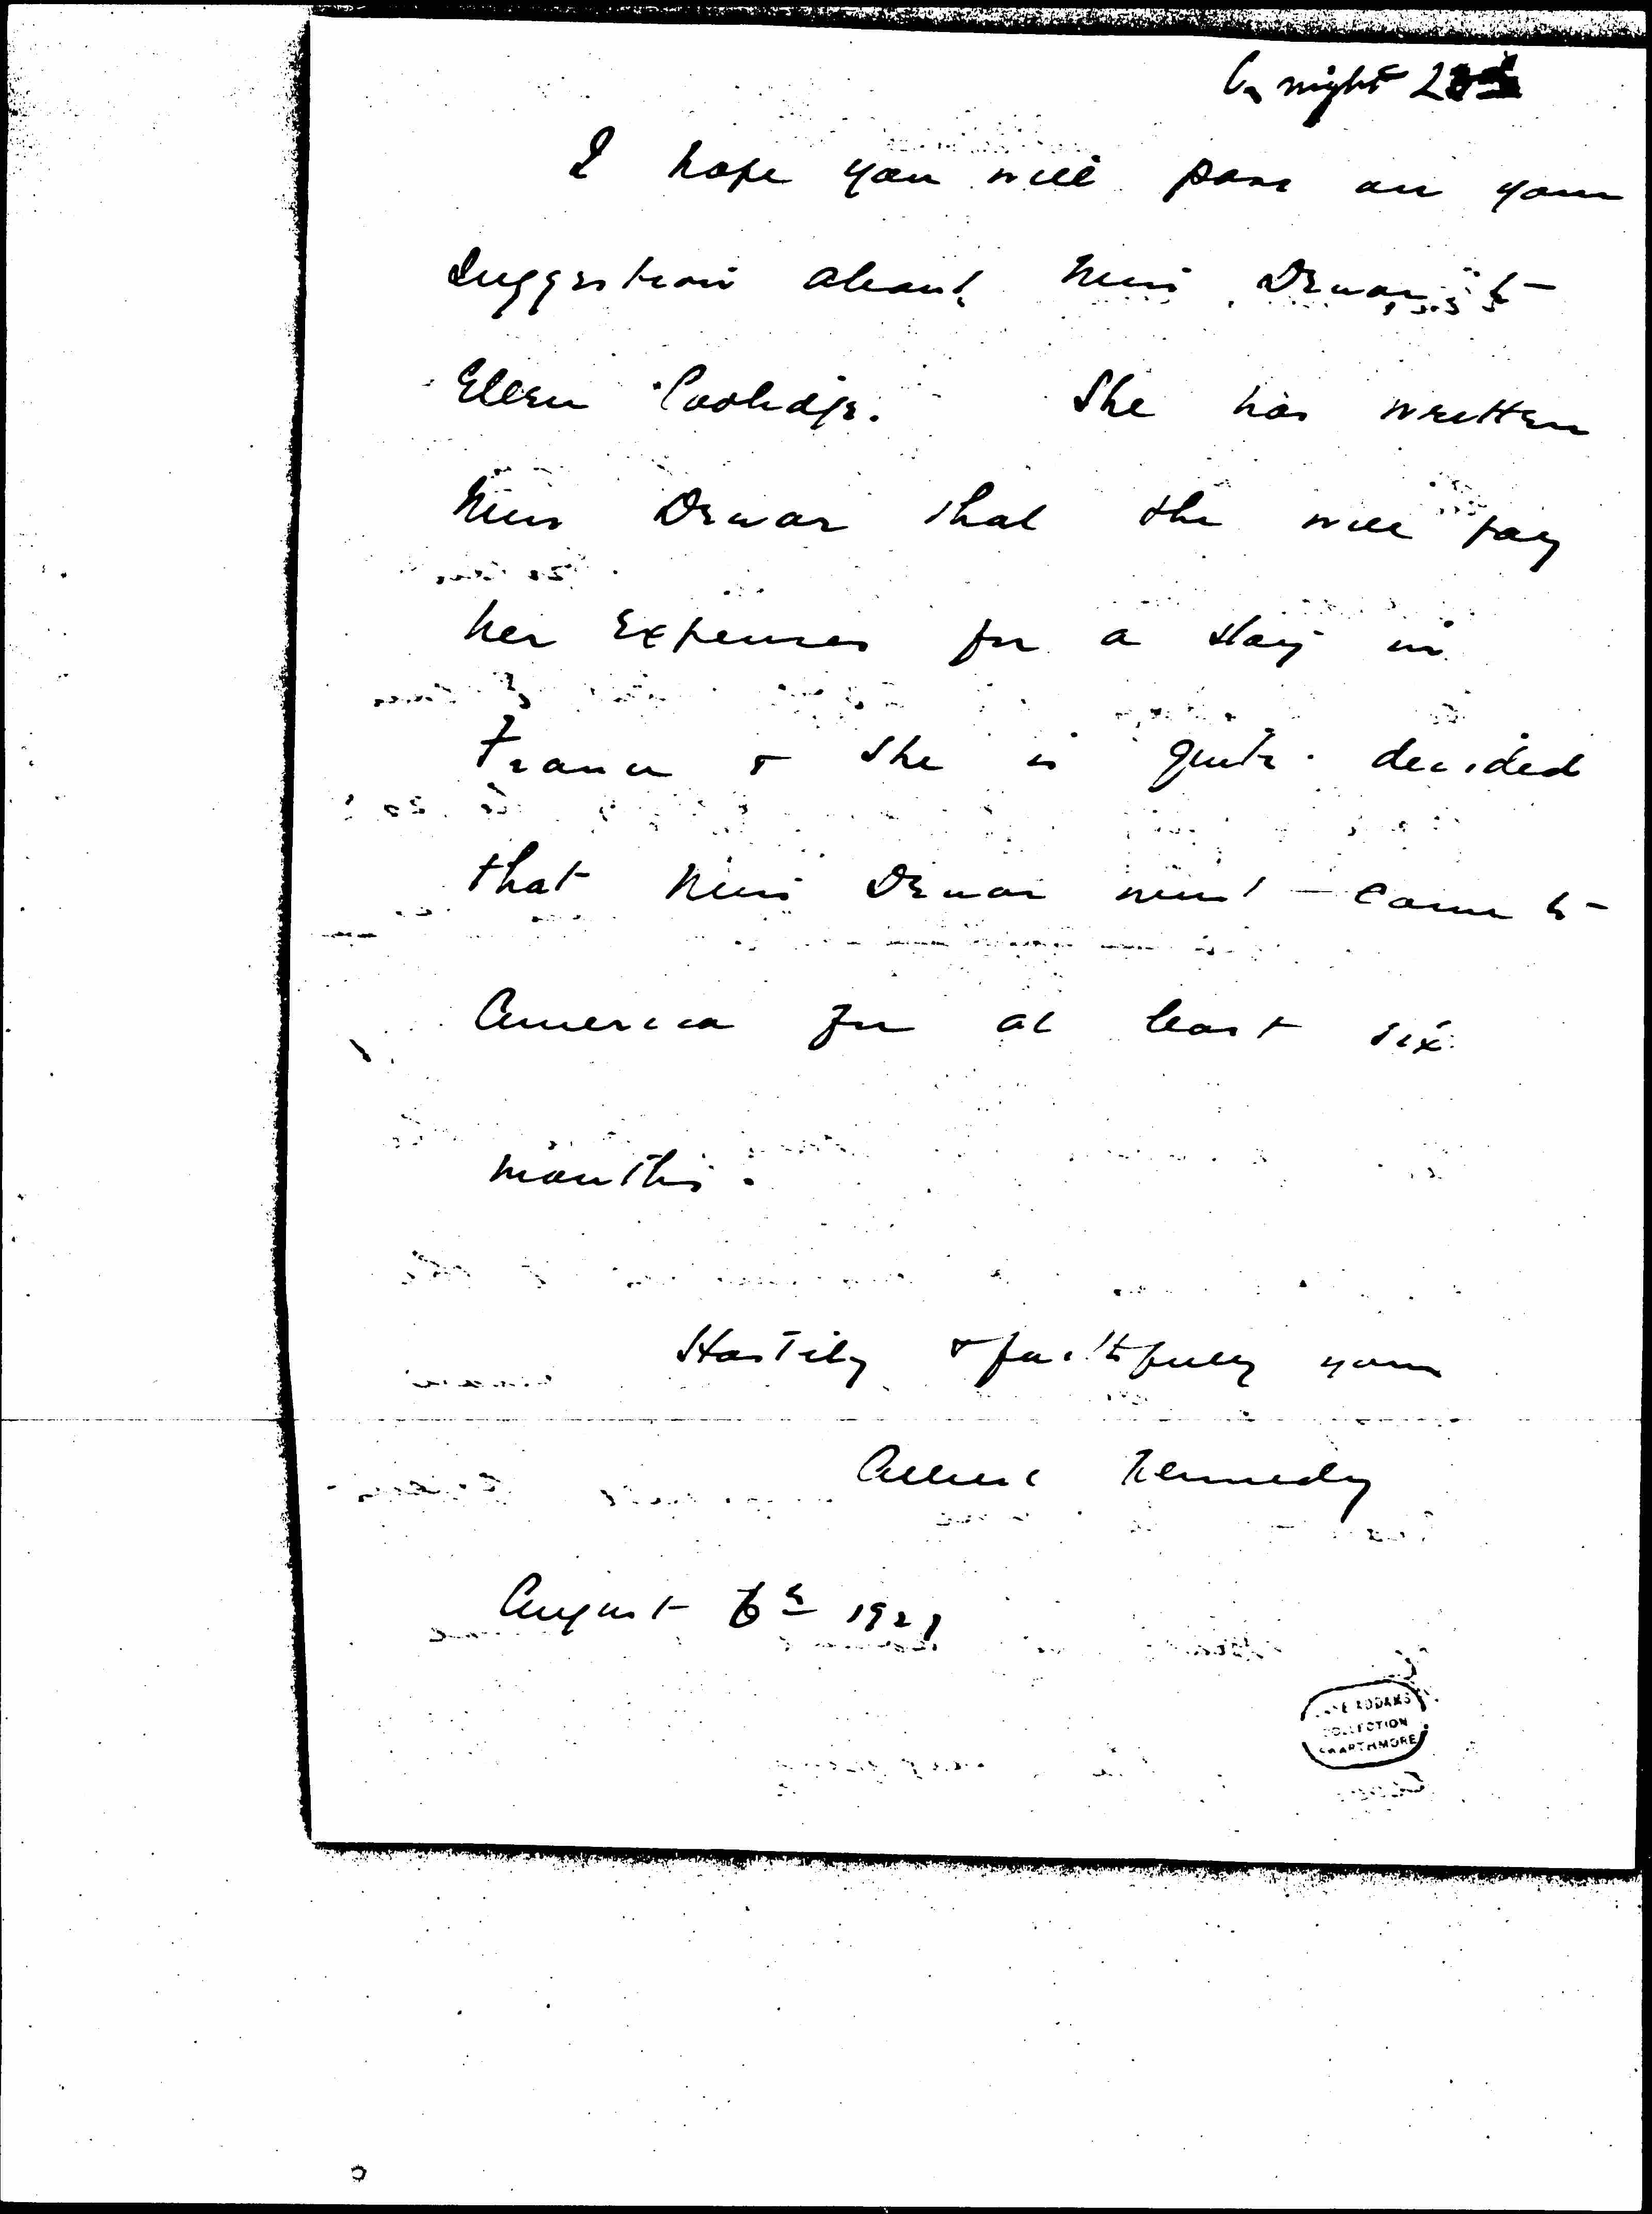 night 2
I hope you will pass on your
suggestion about Miss Dewar to
Ellen Coolidge. She has written
Miss Dewar that she will pay
her expenses for a stay in
France & she is quite decided
that Miss Dewar must come to
America for at least six
months.
Hastily & faithfully yours
Albert Kennedy
August 6th 1921
JANE ADDAMS
COLLECTION
SWARTHMORE